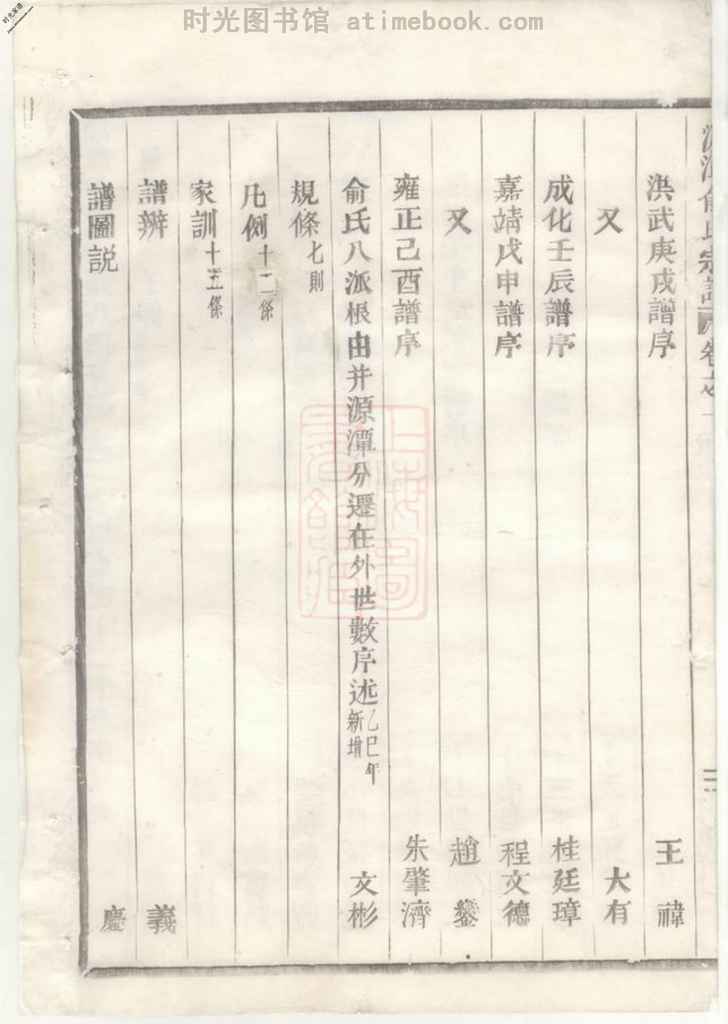 时光图书馆 atimebook.com
洪武庚戌譜序 王禕
又 大有
成化壬辰譜序 桂廷璋
嘉靖戊申譜序 程文德
又 趙鑾
雍正己酉譜序 朱肇濟
俞氏八派根由并源潭分遷在外世數序述 乙巳年新增 文彬
規條 七則
凡例 十二條
家訓 十五條
譜辨 義
譜圖説 慶